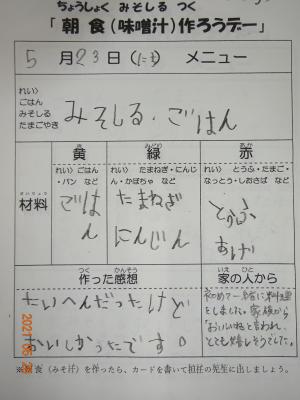 ちょうしょく みそしる つく
「朝食(味噌汁)作ろうデー」
5月23日(にち) メニュー
れい)
ごはん
みそしる
たまごやき
みそしる・ごはん
黄 緑 赤
れい) ごはん
・パン など
れい) たまねぎ・にんじ
ん・かぼちゃ など
れい) とうふ・たまご・
なっとう・しおさば など
ざいりょう
材料
ごは
ん
たまねぎ
にんじん
とうふ
あげ
つく かんそう
作った感想
いえ ひと
家の人から
たいへんだったけど
おいしかったです。
初めて一緒に料理
をしました。家族から
「おいしいね」と言われ、
とても嬉しそうでした。
食(みそ汁)を作ったら、カードを書いて担任の先生に出しましょう。